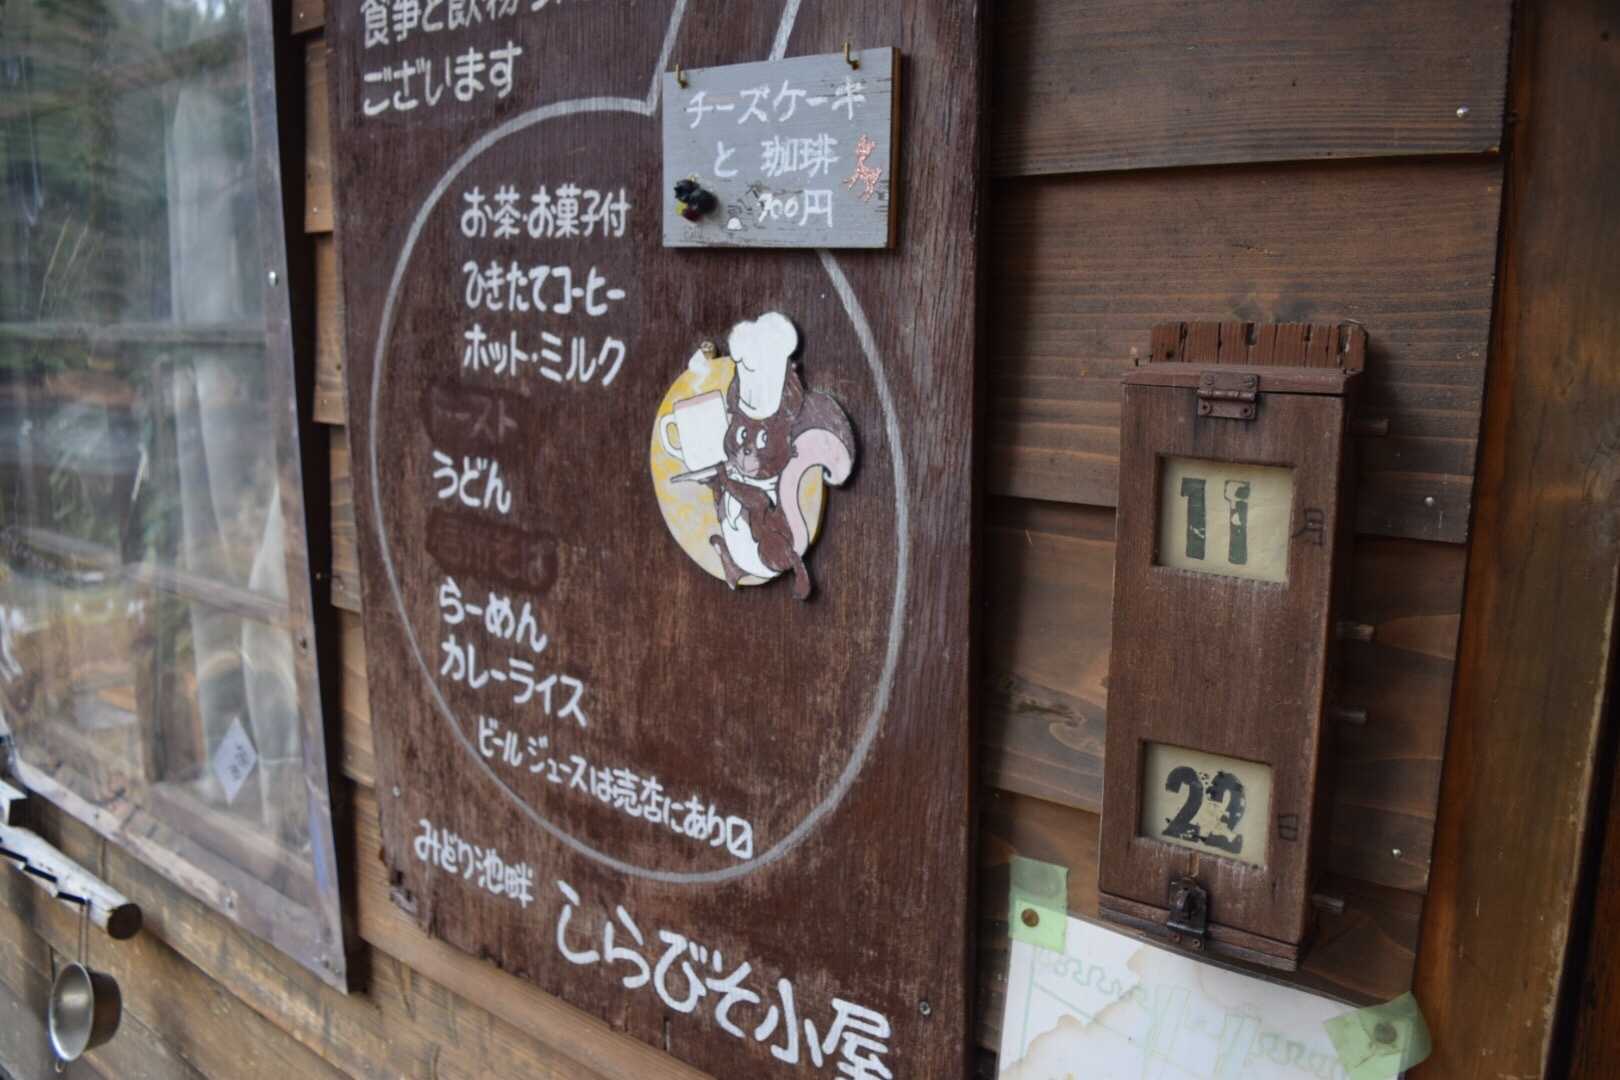 食事と飲物
ございます
チーズケーキ
と 珈琲
700円
お茶・お菓子付
ひきたてコーヒー
ホット・ミルク
トースト
うどん
らーめん
カレーライス
ビール ジュースは売店にあり〼
みどり池畔
しらびそ小屋
11 月
22 日